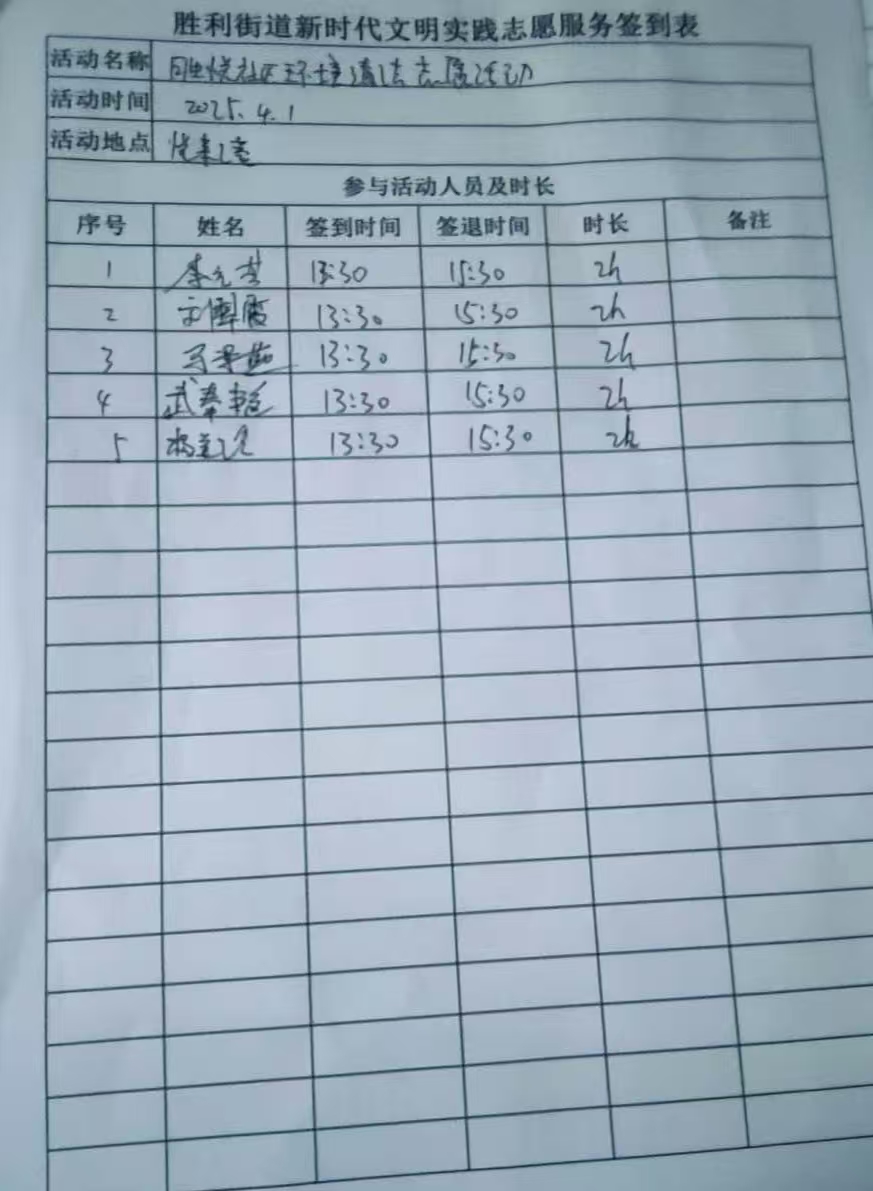 胜利街道新时代文明实践志愿服务签到表
活动名称 胜悦社区环境清洁志愿活动
活动时间 2025.4.1
活动地点 悦来
参与活动人员及时长
序号 姓名 签到时间 签退时间 时长 备注
1 李 13:30 15:30 2h
2 13:30 15:30 2h
3 13:30 15:30 2h
4 武 13:30 15:30 2h
5 杨 13:30 15:30 2h